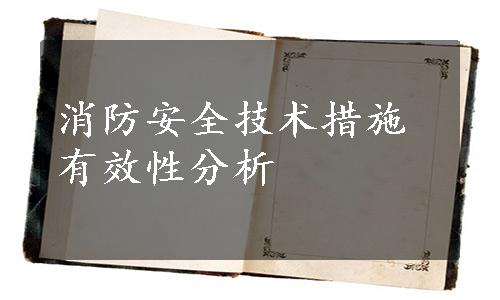 消防安全技术措施
有效性分析